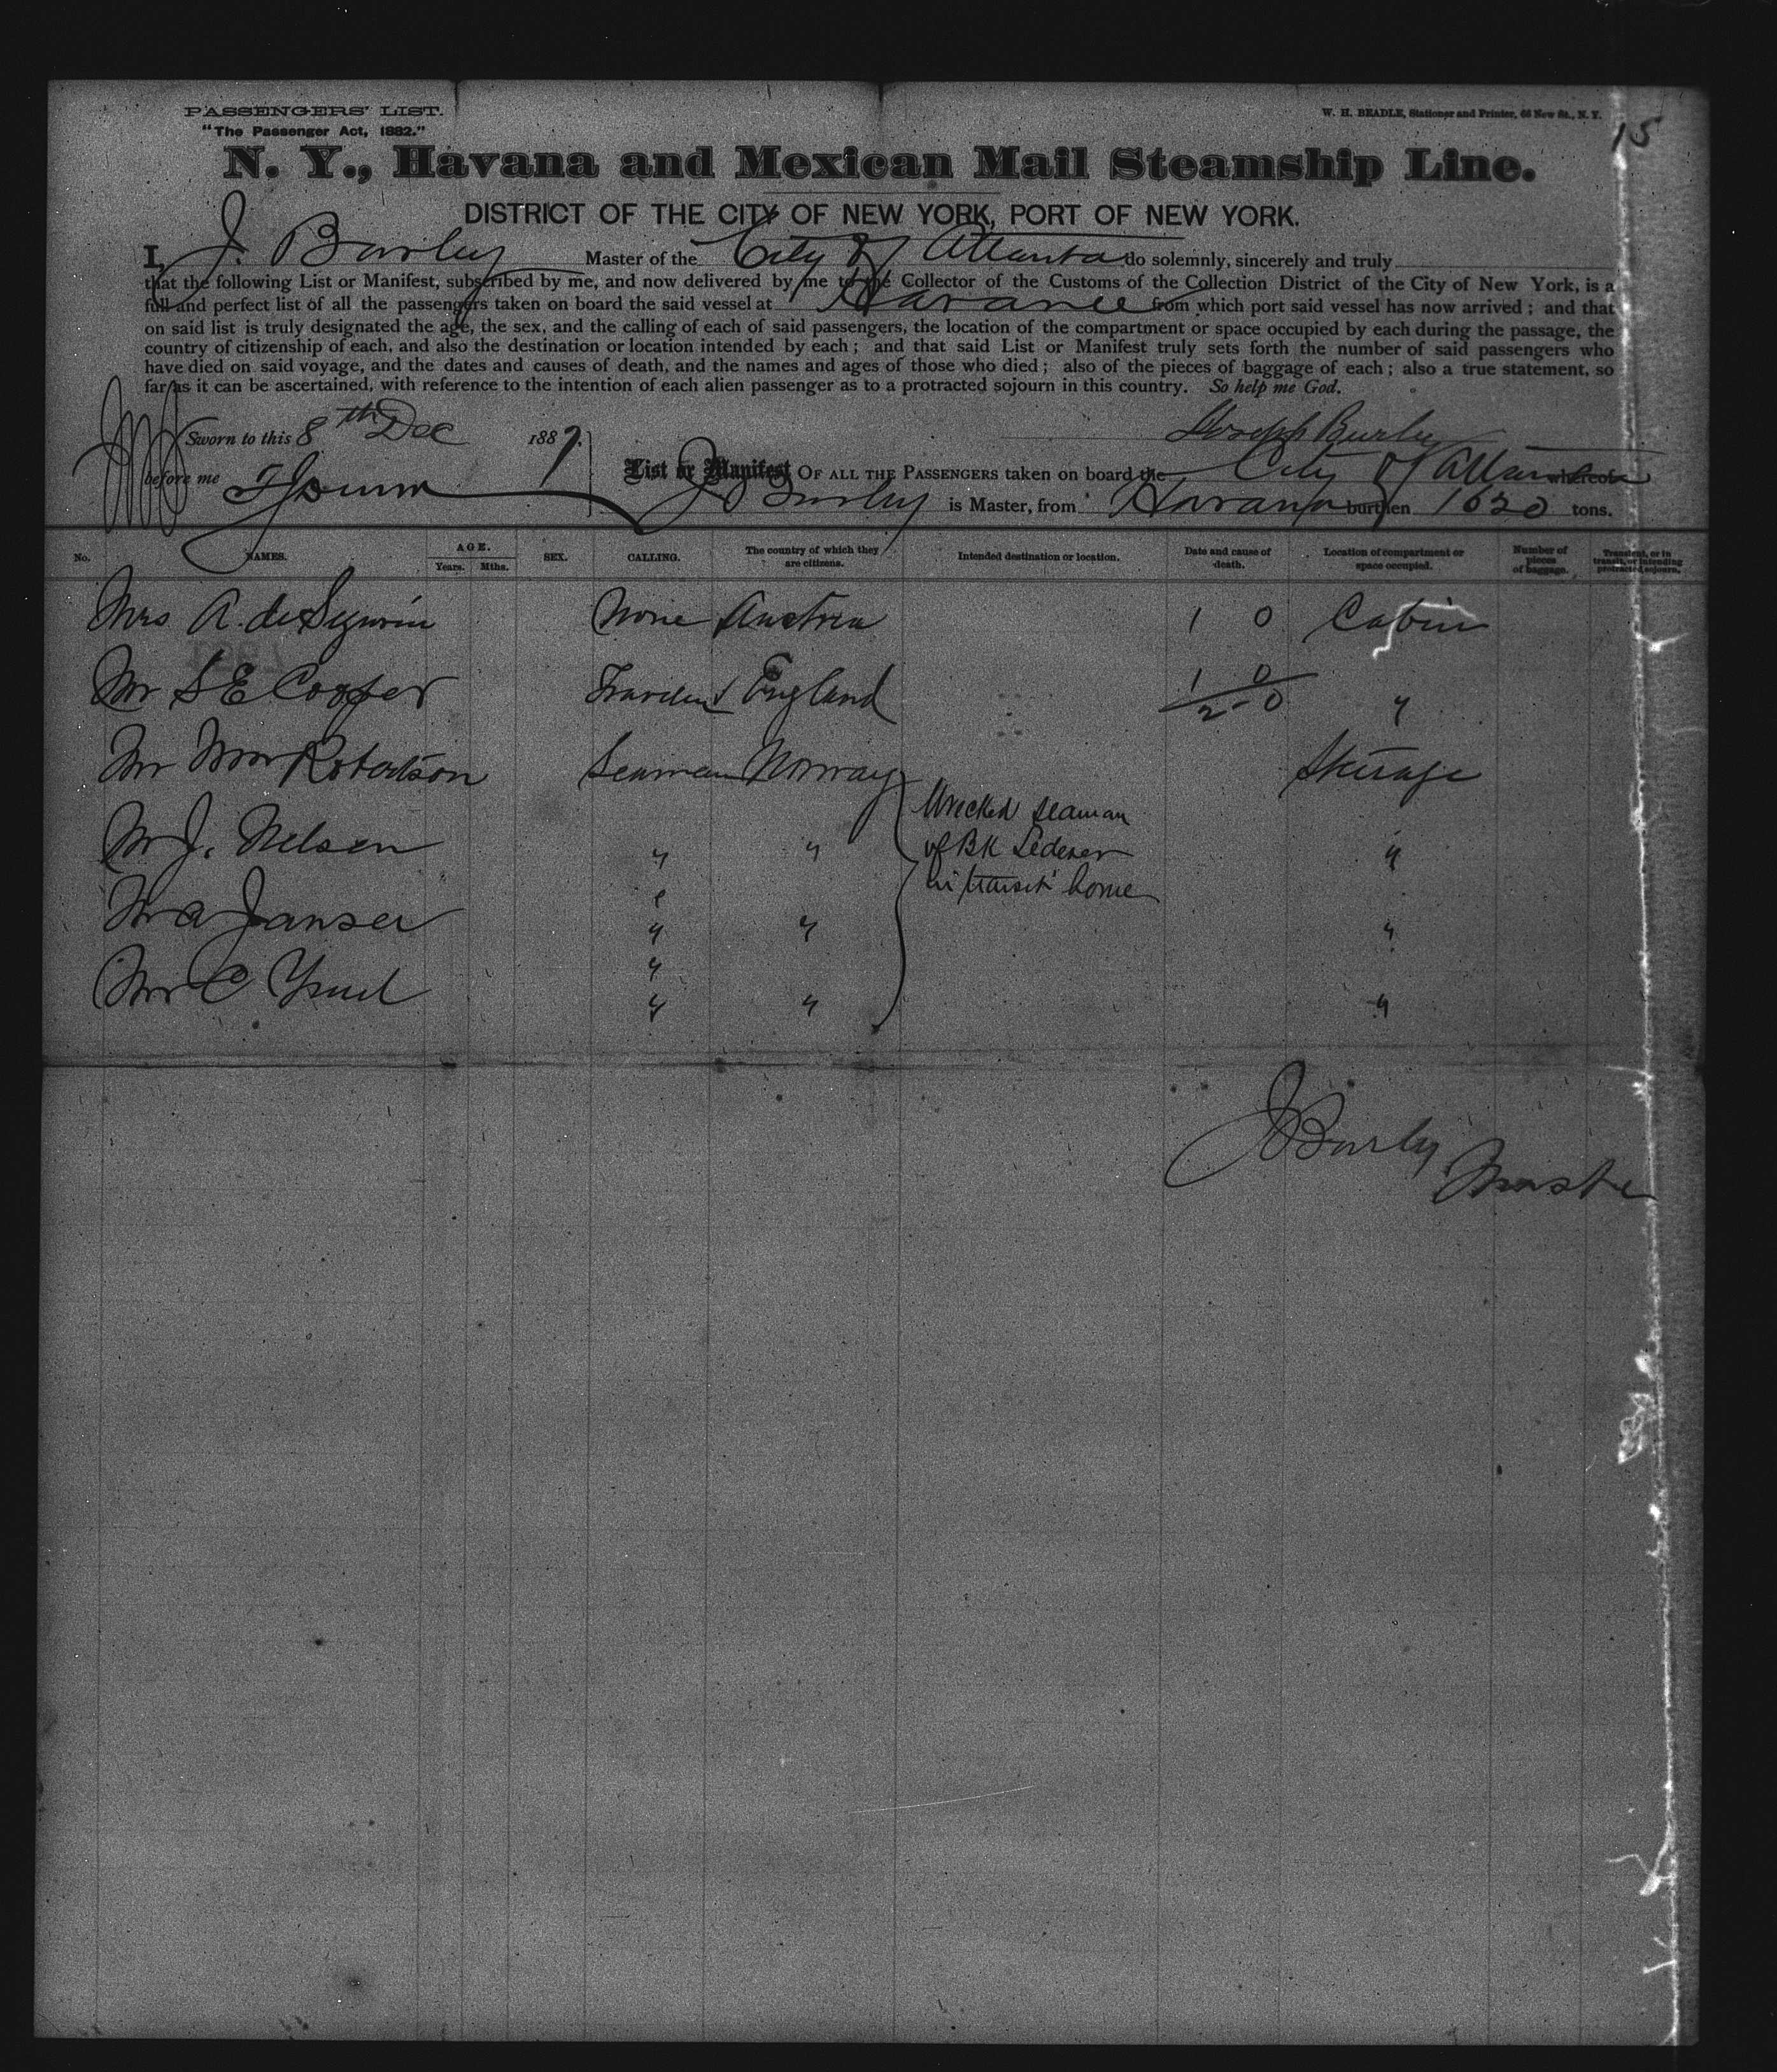 PASSENGERS' LIST.
"The Passenger Act, 1882."
W. H. BEADLE, Stationer and Printer, 66 New St., N. Y.
15
N. Y., Havana and Mexican Mail Steamship Line.
DISTRICT OF THE CITY OF NEW YORK, PORT OF NEW YORK.
I, J. Burley Master of the City of Atlanta do solemnly, sincerely and truly
that the following List or Manifest, subscribed by me, and now delivered by me to the Collector of the Customs of the Collection District of the City of New York, is a
full and perfect list of all the passengers taken on board the said vessel at Havana from which port said vessel has now arrived; and that
on said list is truly designated the age, the sex, and the calling of each of said passengers, the location of the compartment or space occupied by each during the passage, the
country of citizenship of each, and also the destination or location intended by each; and that said List or Manifest truly sets forth the number of said passengers who
have died on said voyage, and the dates and causes of death, and the names and ages of those who died; also of the pieces of baggage of each; also a true statement, so
far as it can be ascertained, with reference to the intention of each alien passenger as to a protracted sojourn in this country. So help me God.
Sworn to this 8th Dec 1887.
Joseph Burley
before me
List or Manifest OF ALL THE PASSENGERS taken on board the City of Atlanta whereof
J Burley is Master, from Havana burthen 1620 tons.
No. NAMES. AGE. Years. Mths. SEX. CALLING. The country of which they are citizens. Intended destination or location. Date and cause of death. Location of compartment or space occupied. Number of pieces of baggage. Transient, or in transit, or intending protracted sojourn.
Mrs A. de None Austria 1 0 Cabin
Mr S E Cooper England 1 0 "
2-0
Mr Robertson Seaman Norway Steerage
Wrecked seaman
Mr J. Nelsen " " of BK Lederer "
in transit home
"
Mr A Jansen " " "
"
Mr C " " "
J Burley
Master